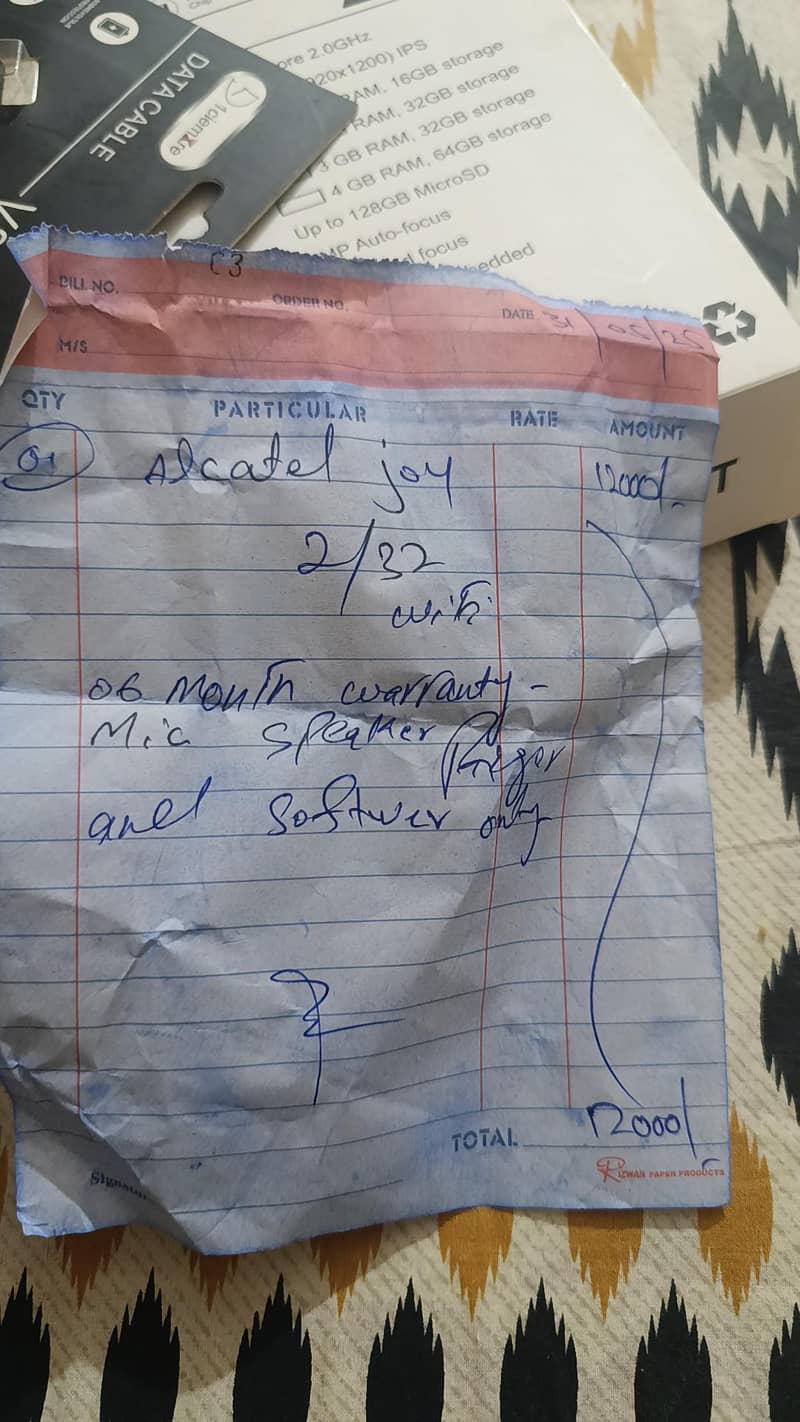 DATA CABLE
ore 2.0GHz
920x1200) IPS
RAM, 16GB storage
RAM, 32GB storage
3 GB RAM, 32GB storage
4 GB RAM, 64GB storage
Up to 128GB MicroSD
MP Auto-focus
focus
edded
C3
BILL NO.
ORDER NO.
DATE 31/05/25
M/S
QTY PARTICULAR RATE AMOUNT
01 Alcatel joy 12000/-
2/32
with
06 Month warranty -
Mic Speaker
and Softwer only
TOTAL 12000/-
RIZWAN PAPER PRODUCTS